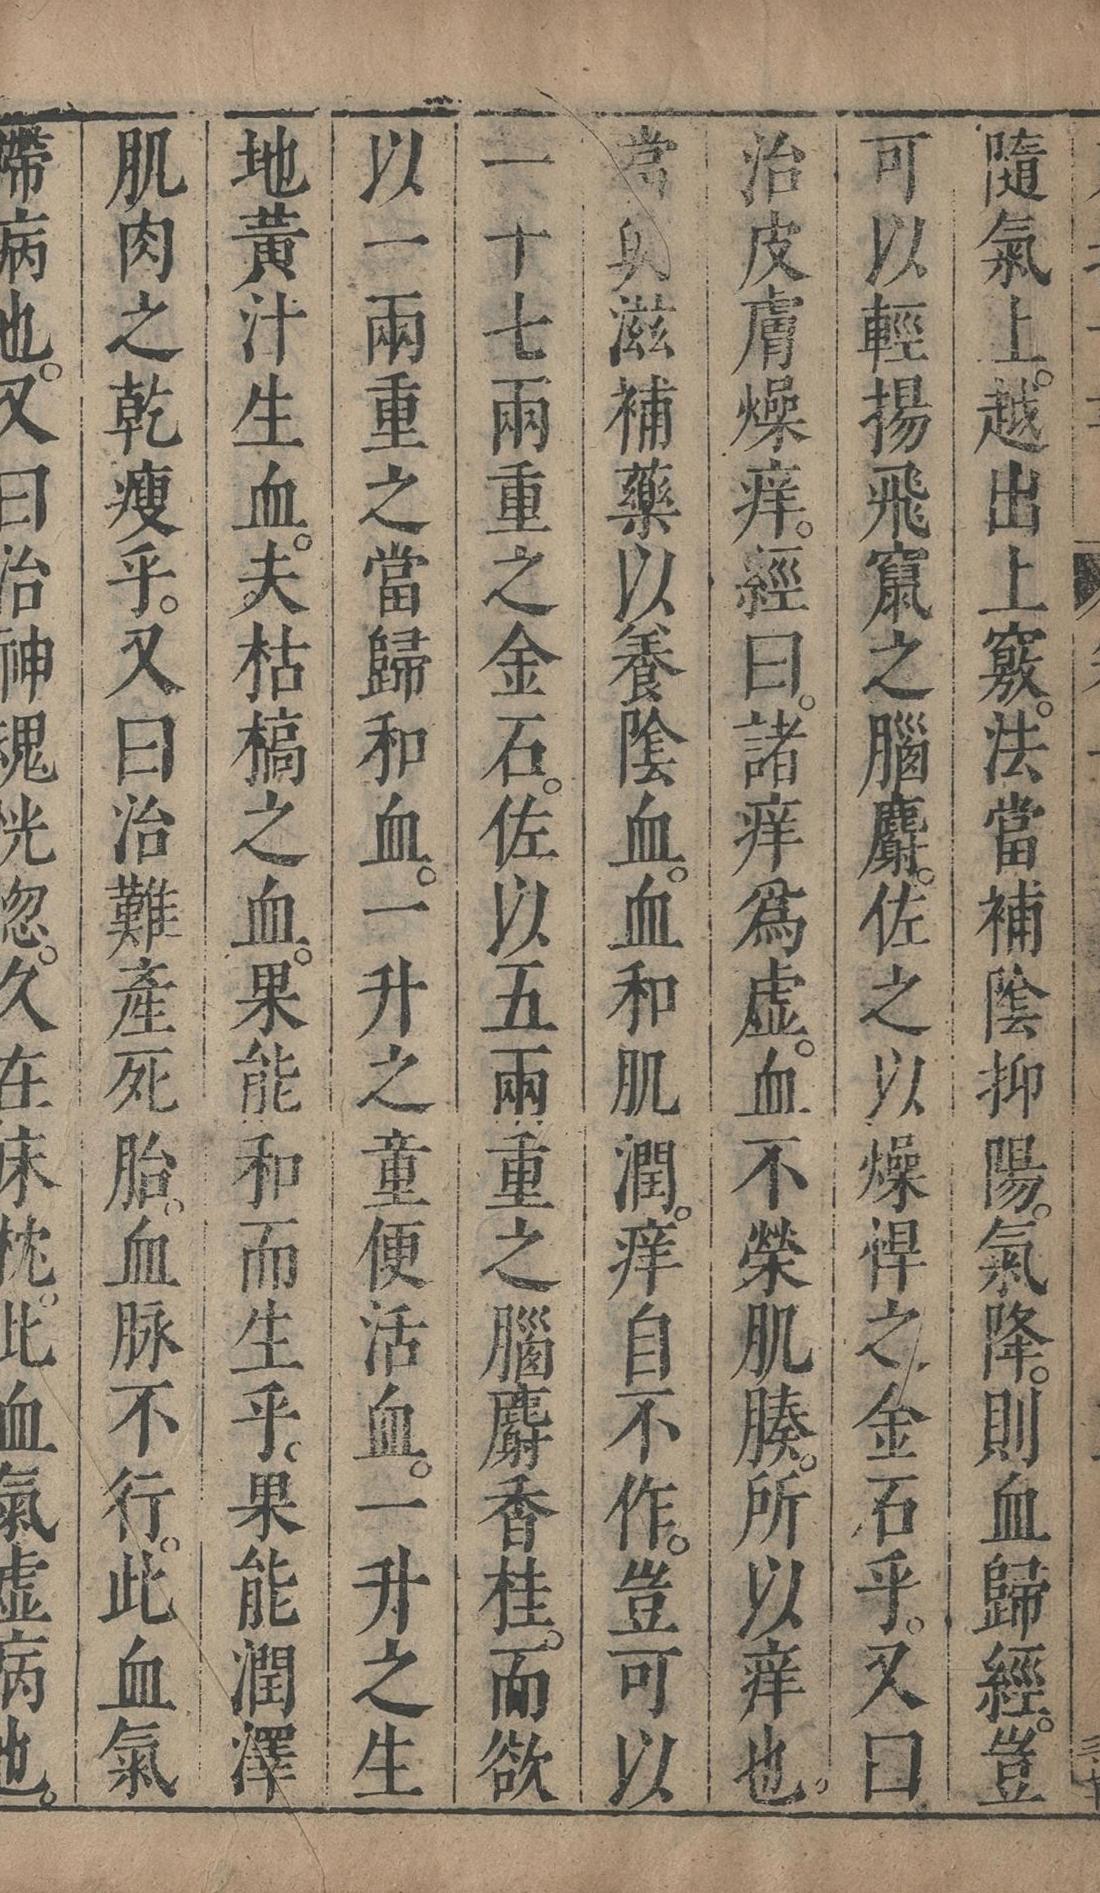 隨氣上。越出上竅。法當補陰抑陽。氣降。則血歸經。豈
可以輕揚飛竄之腦麝。佐之以燥悍之金石乎。又曰
治皮膚燥痒。經曰。諸痒爲虚。血不榮肌腠。所以痒也。
當與滋補藥以養陰血。血和肌潤。痒自不作。豈可以
一十七兩重之金石。佐以五兩重之腦麝香桂。而欲
以一兩重之當歸和血。一升之童便活血。一升之生
地黃汁生血。夫枯槁之血。果能和而生乎。果能潤澤
肌肉之乾瘦乎。又曰治難產死胎。血脉不行。此血氣
滯病也。又曰治神魂恍惚。久在床枕。此血氣虚病也。